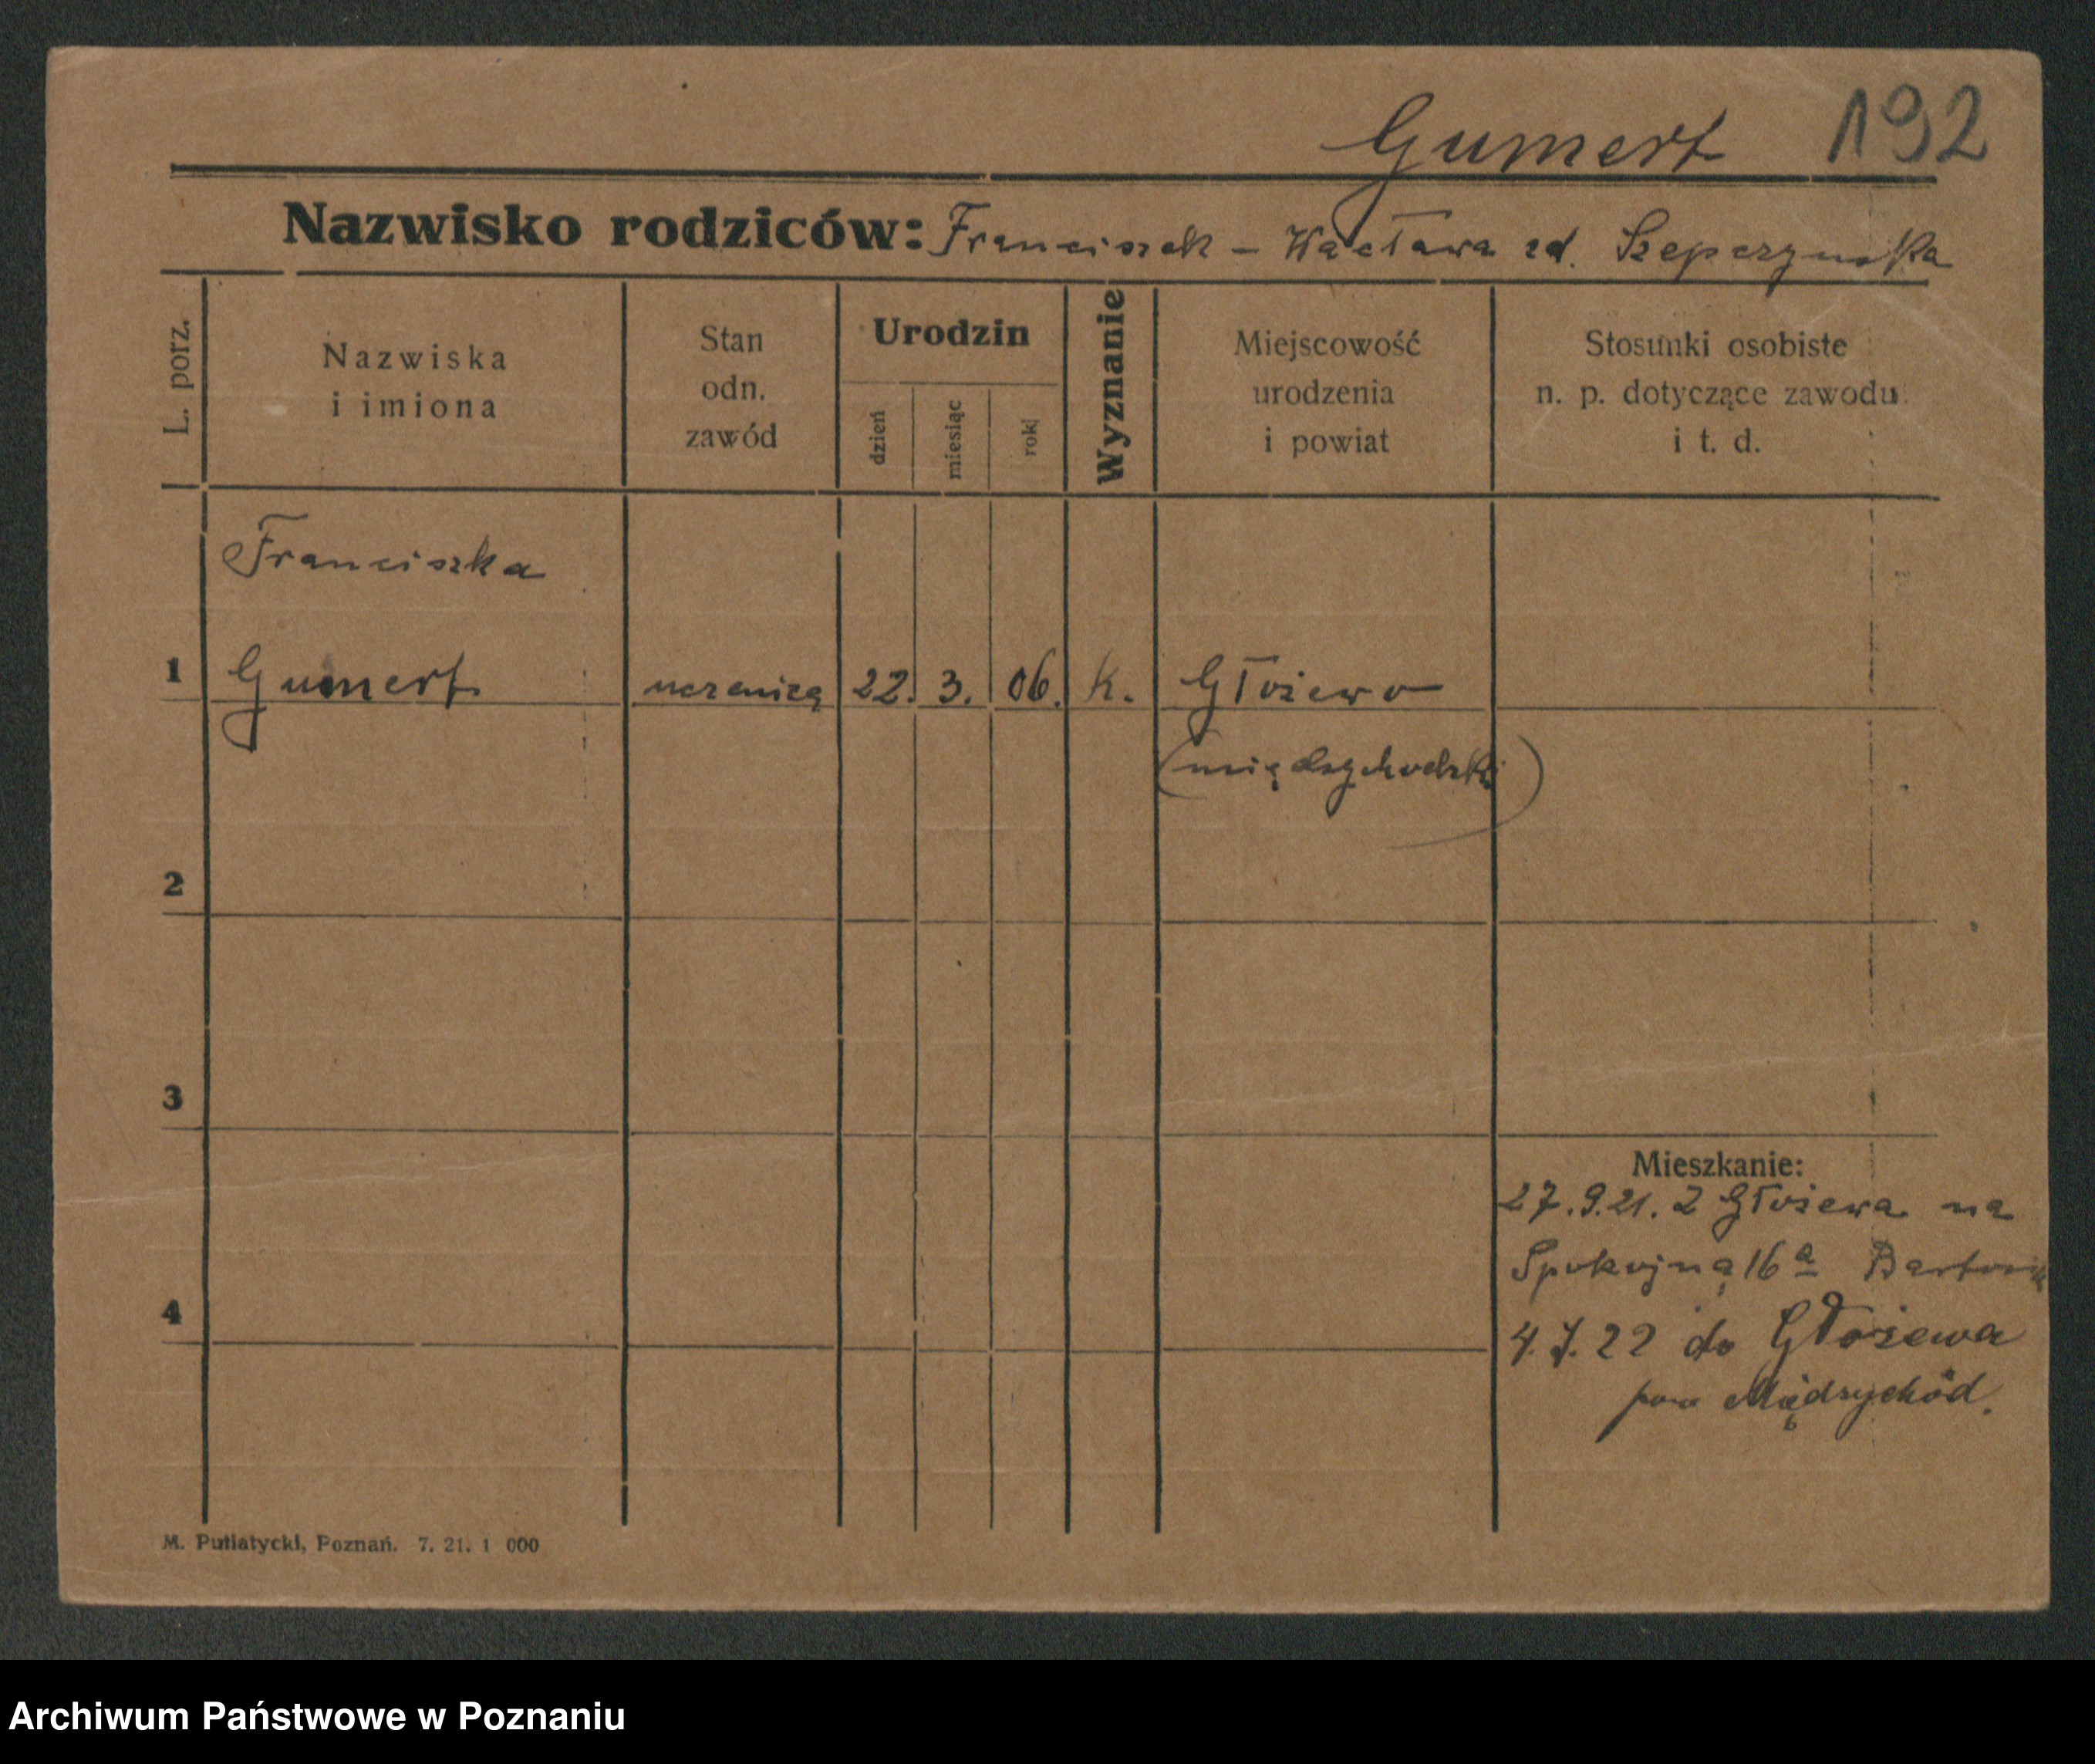 Gumert 192
Nazwisko rodziców: Franciszek – Wacława zd. Szepczyńska
L. porz.
Nazwiska
i imiona
Stan
odn.
zawód
Urodzin
dzień
miesiąc
rok
Wyznanie
Miejscowość
urodzenia
i powiat
Stosunki osobiste
n. p. dotyczące zawodu
i t. d.
Franciszka
1 Gumert uczenica 22. 3. 06. k. Głożewo
(międzychodzki)
2
3
Mieszkanie:
27.9.21. Z Głożewa na
Spokojną 16a
4
4.7.22 do Głożewa
pow Międzychód.
M. Putiatycki, Poznań. 7. 21. 1 000
Archiwum Państwowe w Poznaniu